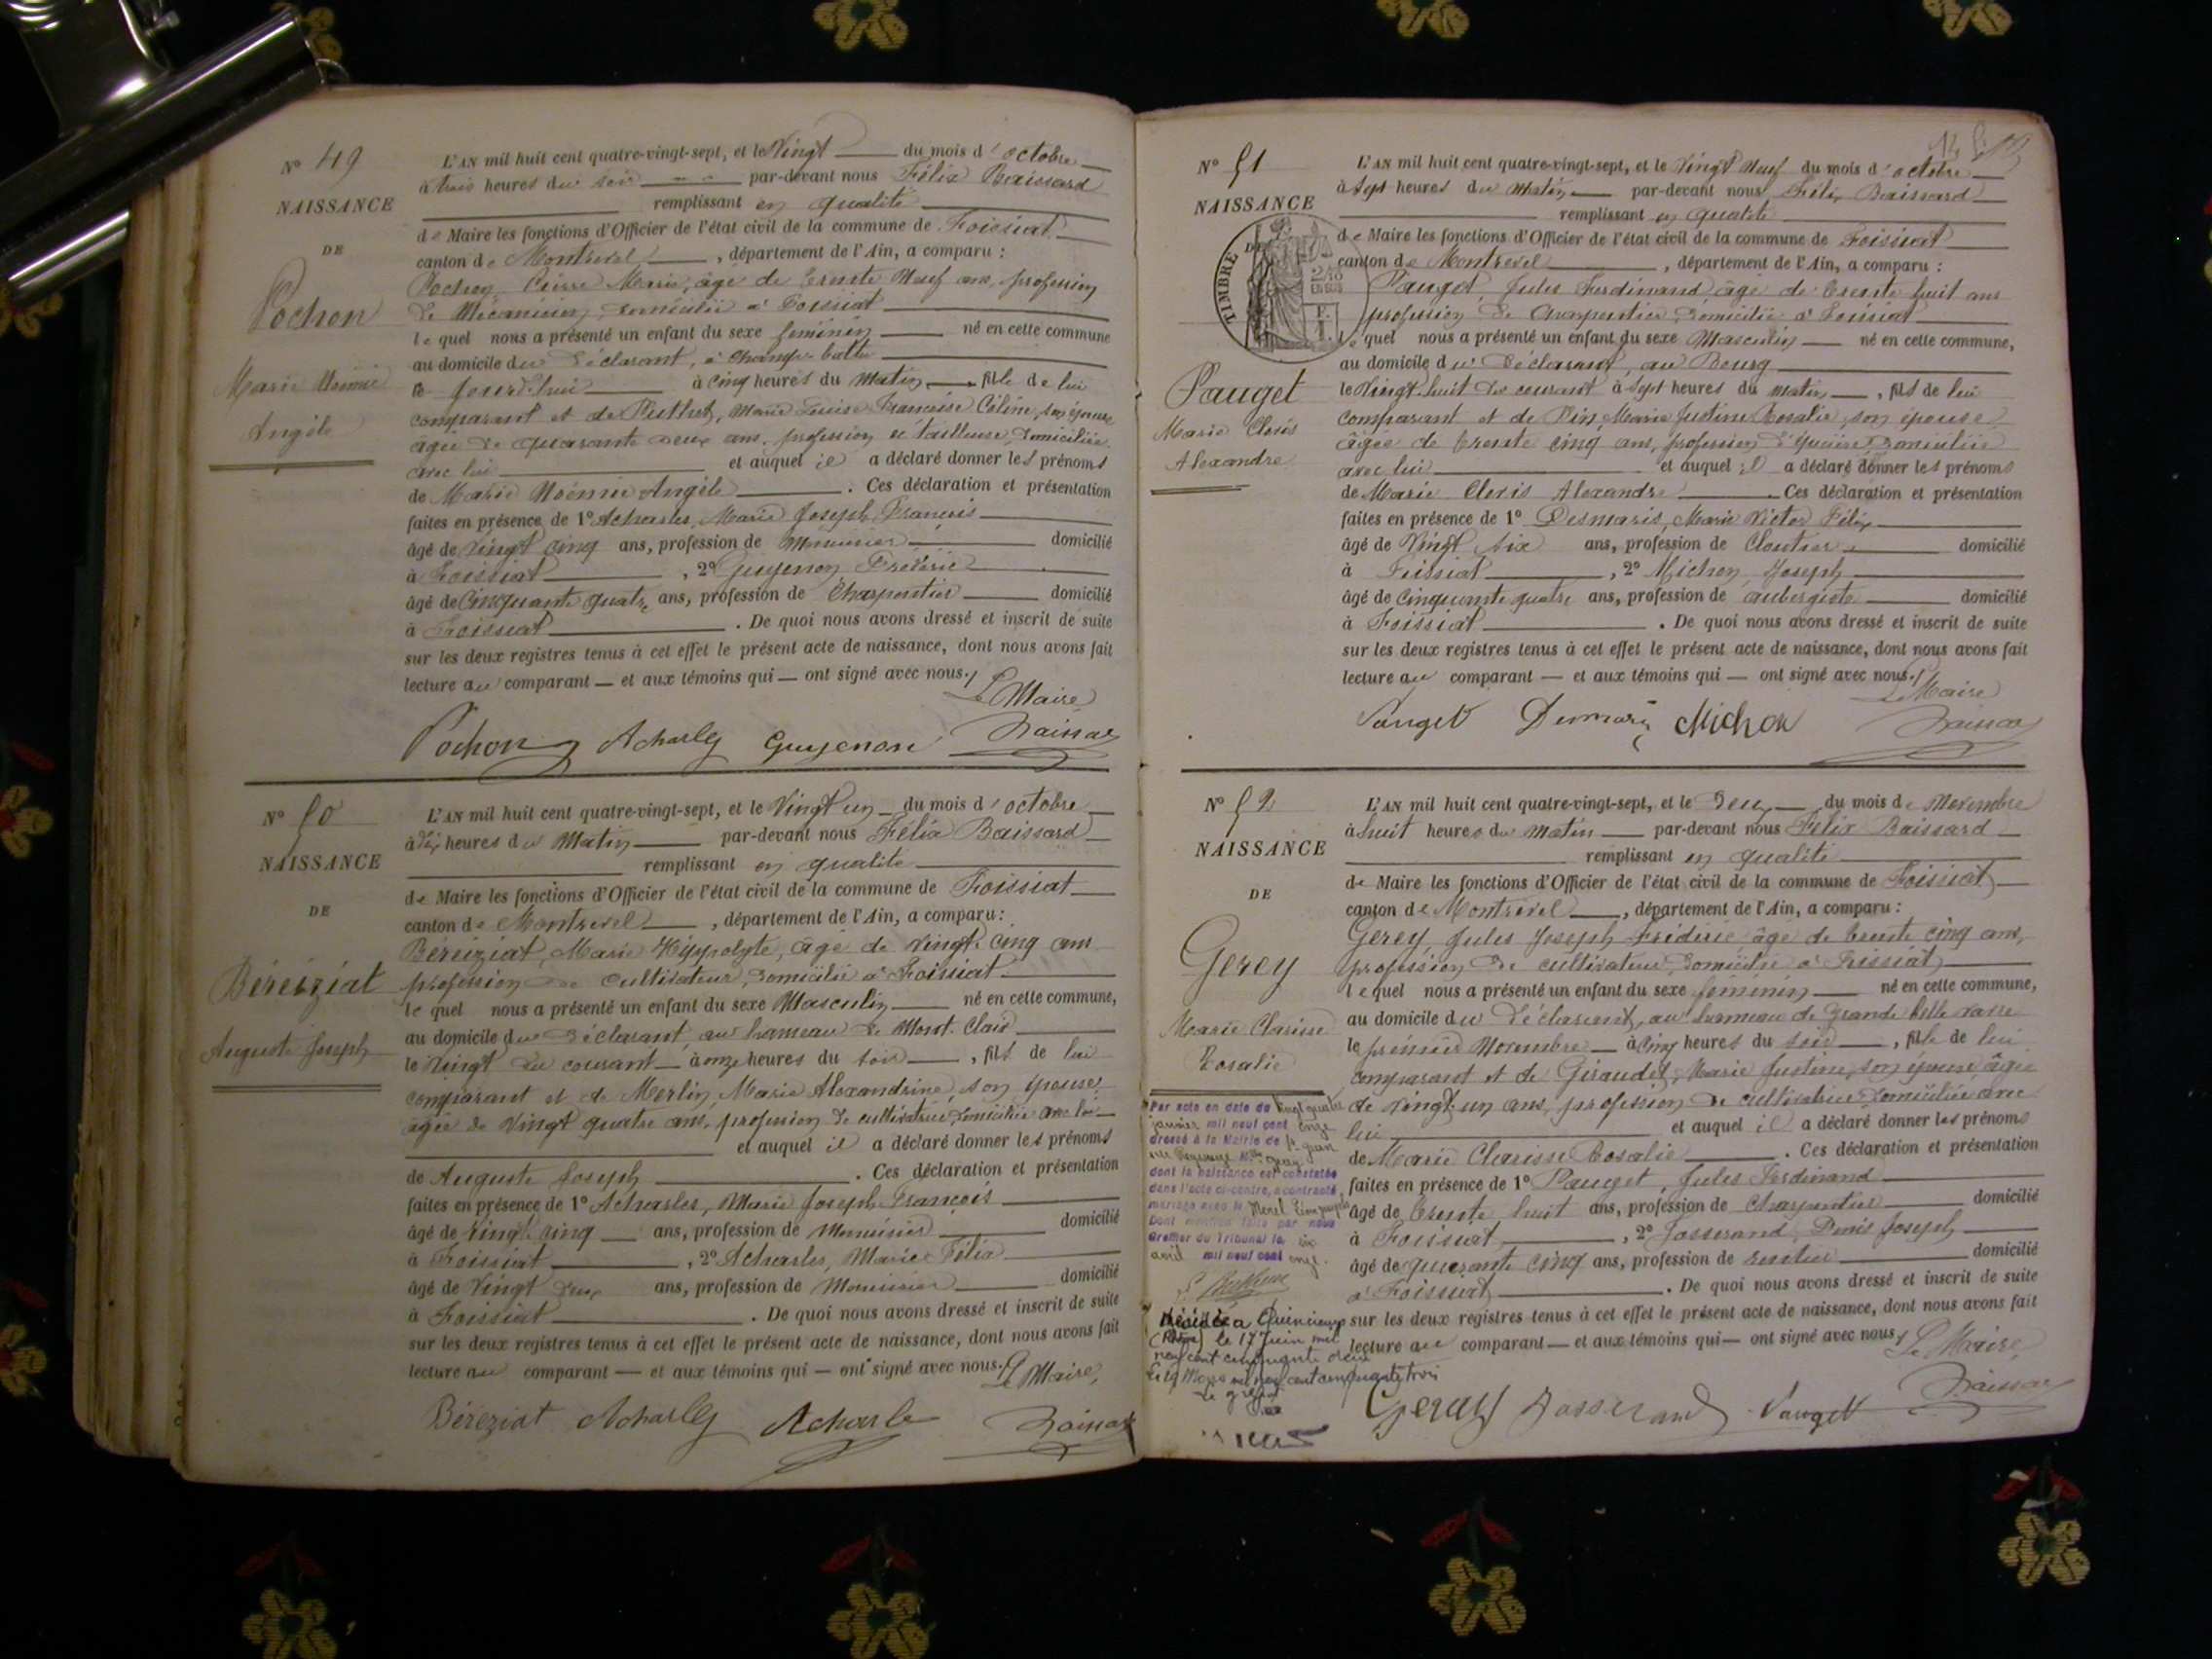 N° 49
NAISSANCE
DE
Pochon
Marie Noémie
Angèle
L'AN mil huit cent quatre-vingt-sept, et le Vingt du mois d'octobre
à trois heures du soir par-devant nous Félix Baissard
remplissant en qualité
de Maire les fonctions d'Officier de l'état civil de la commune de Foissiat
canton de Montrevel, département de l'Ain, a comparu :
Pochon, Marie, âgé de trente Neuf ans, profession
de Mécanicien, domicilié à Foissiat
lequel nous a présenté un enfant du sexe féminin né en cette commune
au domicile du déclarant, à
ce jourd'hui à cinq heures du matin, fille de lui
comparant et de Puthet, Marie Louise Françoise Céline, son épouse
âgée de quarante deux ans, profession de tailleuse, domiciliée
avec lui et auquel il a déclaré donner les prénoms
de Marie Noémie Angèle. Ces déclaration et présentation
faites en présence de 1° Acharles, Marie Joseph François
âgé de vingt cinq ans, profession de Menuisier domicilié
à Foissiat, 2° Guyenon, Frédéric
âgé de Cinquante quatre ans, profession de Charpentier domicilié
à Foissiat. De quoi nous avons dressé et inscrit de suite
sur les deux registres tenus à cet effet le présent acte de naissance, dont nous avons fait
lecture au comparant — et aux témoins qui — ont signé avec nous.
Le Maire
Pochon Acharles Guyenon Baissard
N° 50
NAISSANCE
DE
Béréziat
Auguste Joseph
L'AN mil huit cent quatre-vingt-sept, et le Vingt un du mois d'octobre
à dix heures du Matin par-devant nous Félix Baissard
remplissant en qualité
de Maire les fonctions d'Officier de l'état civil de la commune de Foissiat
canton de Montrevel, département de l'Ain, a comparu :
Béréziat, Marie Hyppolyte, âgé de vingt cinq ans
profession de cultivateur, domicilié à Foissiat
lequel nous a présenté un enfant du sexe Masculin né en cette commune,
au domicile du déclarant, au hameau de Mont Clair
le Vingt du courant à onze heures du soir, fils de lui
comparant et de Merlin, Marie Alexandrine, son épouse
âgée de vingt quatre ans, profession de cultivatrice, domiciliée avec lui
et auquel il a déclaré donner les prénoms
de Auguste Joseph. Ces déclaration et présentation
faites en présence de 1° Acharles, Marie Joseph François
âgé de vingt cinq ans, profession de Menuisier domicilié
à Foissiat, 2° Acharles, Marie Félix
âgé de vingt deux ans, profession de Menuisier domicilié
à Foissiat. De quoi nous avons dressé et inscrit de suite
sur les deux registres tenus à cet effet le présent acte de naissance, dont nous avons fait
lecture au comparant — et aux témoins qui — ont signé avec nous.
Le Maire,
Béréziat Acharles Acharles Baissard
N° 51
NAISSANCE
DE
TIMBRE
Pauget
Marie Clovis
Alexandre
L'AN mil huit cent quatre-vingt-sept, et le Vingt Neuf du mois d'octobre
à sept heures du matin par-devant nous Félix Baissard
remplissant en qualité
de Maire les fonctions d'Officier de l'état civil de la commune de Foissiat
canton de Montrevel, département de l'Ain, a comparu :
Pauget, Jules Ferdinand, âgé de trente huit ans
profession de charpentier, domicilié à Foissiat
lequel nous a présenté un enfant du sexe Masculin né en cette commune,
au domicile du déclarant, au Bourg
le Vingt huit du courant à sept heures du matin, fils de lui
comparant et de Pin, Marie Justine Rosalie, son épouse
âgée de trente cinq ans, profession d'épicière, domiciliée
avec lui et auquel il a déclaré donner les prénoms
de Marie Clovis Alexandre. Ces déclaration et présentation
faites en présence de 1° Desmaris, Marie Victor Félix
âgé de Vingt six ans, profession de Cloutier domicilié
à Foissiat, 2° Michon, Joseph
âgé de cinquante quatre ans, profession de aubergiste domicilié
à Foissiat. De quoi nous avons dressé et inscrit de suite
sur les deux registres tenus à cet effet le présent acte de naissance, dont nous avons fait
lecture au comparant — et aux témoins qui — ont signé avec nous.
Le Maire
Pauget Desmaris Michon Baissard
N° 52
NAISSANCE
DE
Gerey
Marie Clarisse
Rosalie
Par acte en date du vingt quatre
janvier mil neuf cent onze
dressé à la Mairie de St Jean
sur Reyssouze Mlle Gerey
dont la naissance est constatée
dans l'acte ci-contre, a contracté
mariage avec M. Morel
Dont mention faite par nous
Greffier du Tribunal le
avril mil neuf cent onze.
Décédée à Quincieux
(Rhône) le 17 Juin mil
neuf cent cinquante deux
Le 19 Mars mil neuf cent cinquante trois
Le greffier
L'AN mil huit cent quatre-vingt-sept, et le deux du mois de Novembre
à huit heures du matin par-devant nous Félix Baissard
remplissant en qualité
de Maire les fonctions d'Officier de l'état civil de la commune de Foissiat
canton de Montrevel, département de l'Ain, a comparu :
Gerey, Jules Joseph Frédéric âgé de trente cinq ans,
profession de cultivateur, domicilié à Foissiat
lequel nous a présenté un enfant du sexe féminin né en cette commune,
au domicile du déclarant, au hameau de Grande belle vavre
le premier Novembre à cinq heures du soir, fille de lui
comparant et de Giraudet, Marie Justine, son épouse âgée
de vingt un ans, profession de cultivatrice, domiciliée avec
lui et auquel il a déclaré donner les prénoms
de Marie Clarisse Rosalie. Ces déclaration et présentation
faites en présence de 1° Pauget, Jules Ferdinand
âgé de trente huit ans, profession de charpentier domicilié
à Foissiat, 2° Josserand, Denis Joseph
âgé de quarante cinq ans, profession de rentier domicilié
à Foissiat. De quoi nous avons dressé et inscrit de suite
sur les deux registres tenus à cet effet le présent acte de naissance, dont nous avons fait
lecture au comparant — et aux témoins qui — ont signé avec nous,
Le Maire,
Gerey Josserand Pauget Baissard